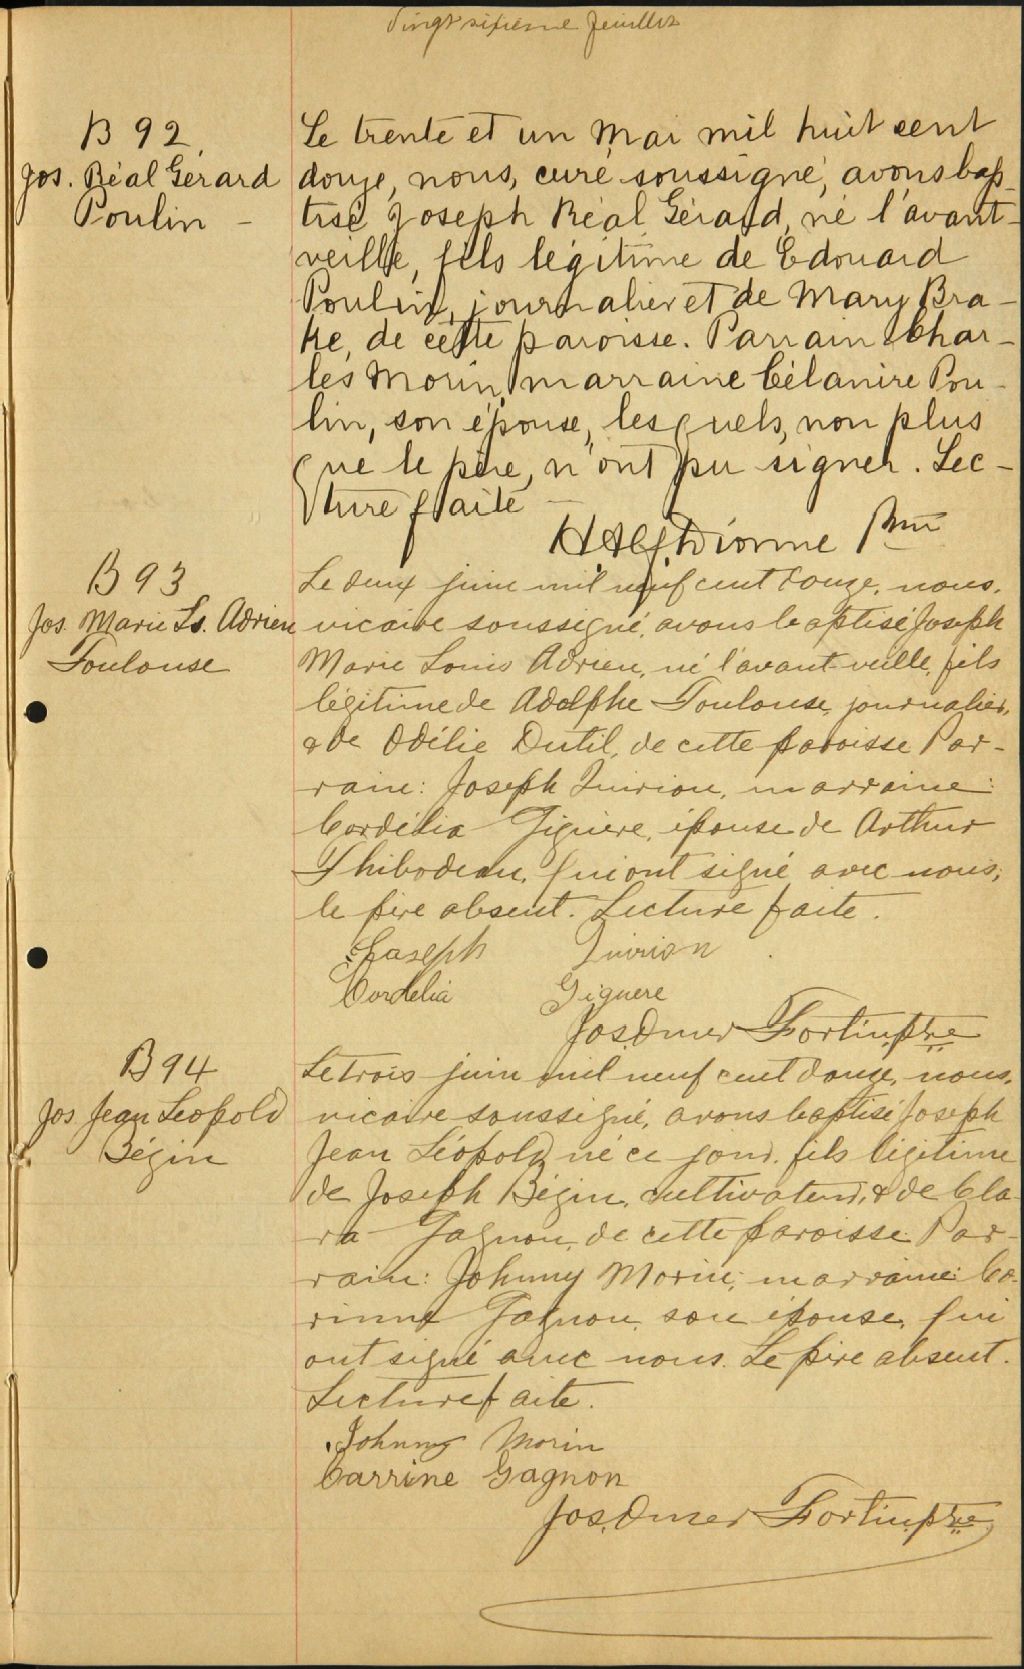 Vingt sixième feuillet
B 92
Jos. Réal Gérard
Poulin -
Le trente et un Mai mil huit cent
douze, nous, curé soussigné, avons bap-
tisé Joseph Réal Gérard, né l'avant-
veille, fils légitime de Edouard
Poulin, journalier et de Mary Bra-
ke, de cette paroisse. Parrain Char-
les Morin, marraine Célanire Pou-
lin, son épouse, lesquels, non plus
que le père, n'ont pu signer. Lec-
ture faite -
H. Alf. Dionne Ptre
B 93
Jos. Marie Ls. Adrien
Toulouse
Le deux juin mil neuf cent douze, nous,
vicaire soussigné, avons baptisé Joseph
Marie Louis Adrien, né l'avant-veille, fils
légitime de Adolphe Toulouse, journalier,
& de Odélie Dutil, de cette paroisse Par-
rain: Joseph Quirion, marraine:
Cordélia Giguère, épouse de Arthur
Thibodeau, qui ont signé avec nous,
le père absent. Lecture faite.
Joseph Quirion
Cordelia Giguere
Jos. Omer Fortin ptre
B 94
Jos Jean Léopold
Bégin
Le trois juin mil neuf cent douze, nous,
vicaire soussigné, avons baptisé Joseph
Jean Léopold né ce jour, fils légitime
de Joseph Bégin, cultivateur, & de Cla-
ra Gagnon, de cette paroisse. Par-
rain: Johnny Morin; marraine: Co-
rinne Gagnon, son épouse, qui
ont signé avec nous. Le père absent.
Lecture faite.
Johnny Morin
Carrine Gagnon
Jos. Omer Fortin ptre